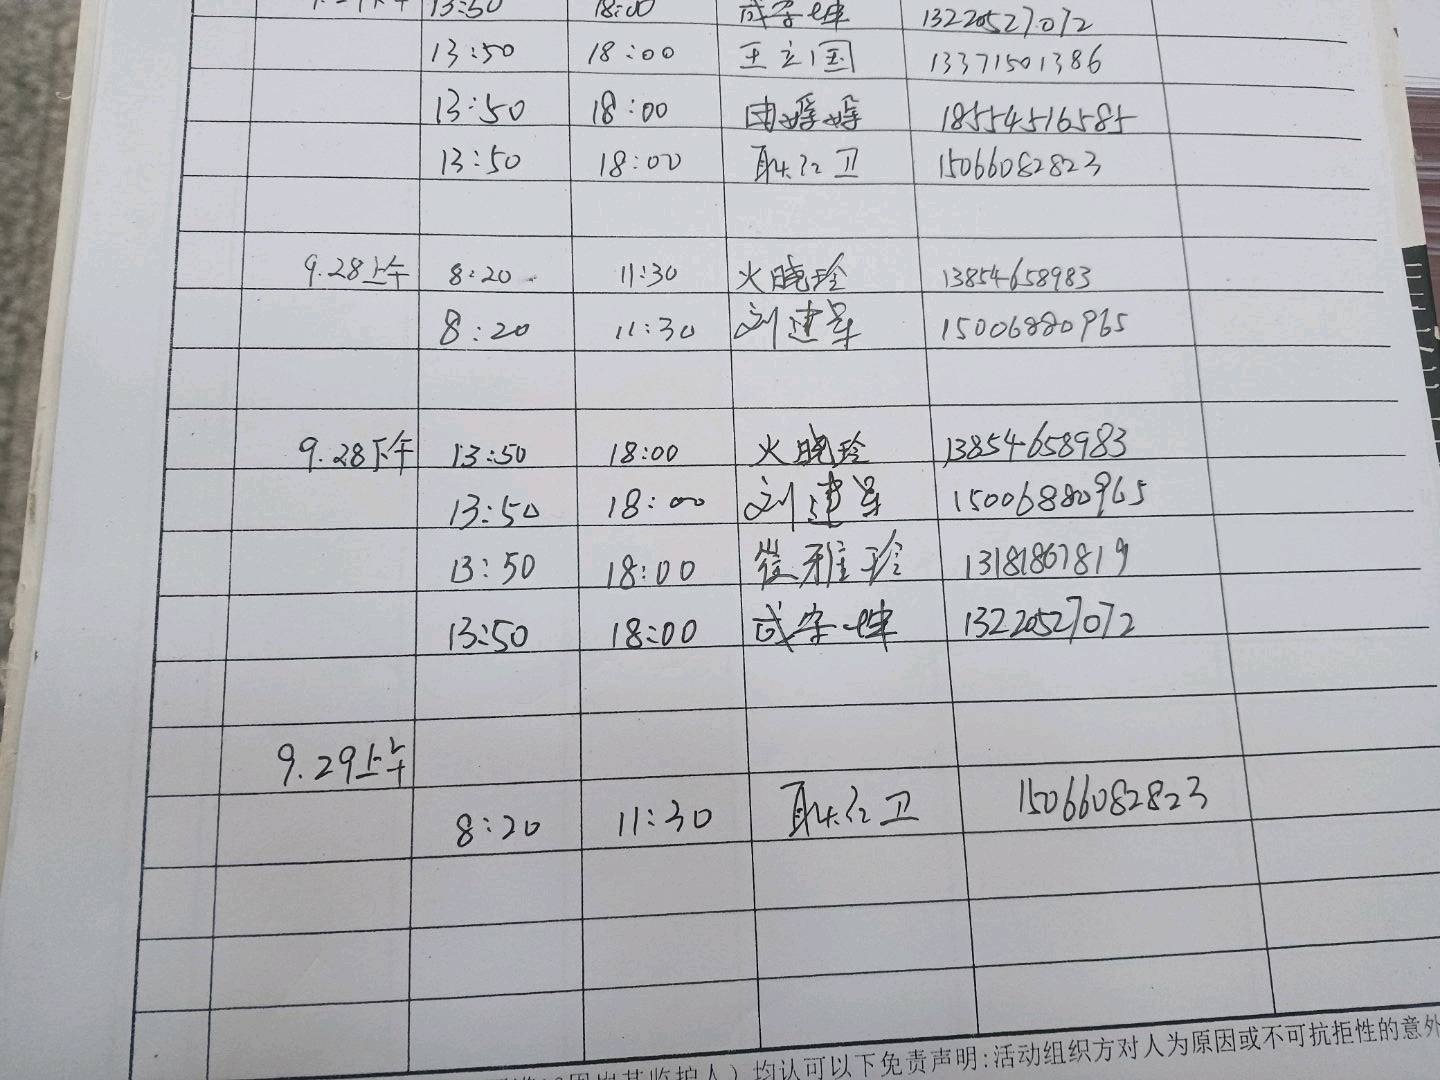 13:50 18:00 成 13220527072
13:50 18:00 王立国 13371501386
13:50 18:00 由婷婷 18554516585
13:50 18:00 耿红卫 15066082823
9.28上午 8:20 11:30 火晓玲 13854658983
8:20 11:30 刘建军 15006880965
9.28下午 13:50 18:00 火晓玲 13854658983
13:50 18:00 刘建军 15006880965
13:50 18:00 崔雅玲 13181867819
13:50 18:00 成 13220527072
9.29上午
8:20 11:30 耿红卫 15066082823
监护人）均认可以下免责声明:活动组织方对人为原因或不可抗拒性的意外